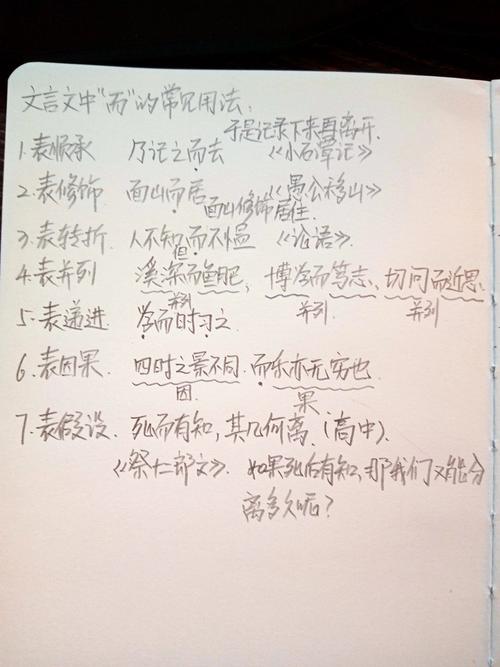 文言文中"而"的常见用法:
于是记录下来再离开.
1.表顺承 乃记之而去 《小石潭记》
2.表修饰 面山而居 《愚公移山》
面山修饰居住.
3.表转折. 人不知而不愠 《论语》.
但
4.表并列 溪深而鱼肥, 博学而笃志, 切问而近思.
并列 并列. 并列
5.表递进. 学而时习之.
6.表因果. 四时之景不同.而乐亦无穷也
因. 果.
7.表假设. 死而有知,其几何离.(高中).
《祭十二郎文》. 如果死后有知,那我们又能分
离多久呢?